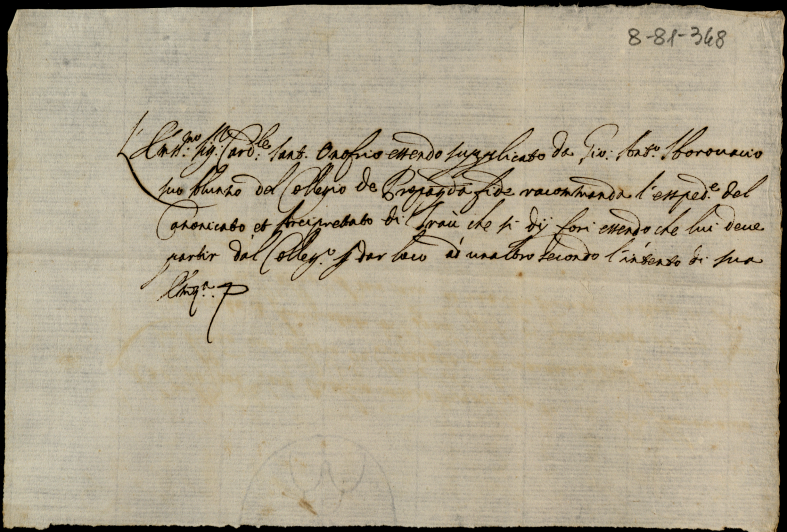 8-81-368
L'Em.mo Sig: Card.le Sant. Onofrio essendo supplicato da Gio: Ant.o Sborouacio
suo Alunno del Collegio de Propaganda fide racommanda l'essped.e del
Canonicato et Arcipretato di Traù che si dij fori essendo che lui deue
partir dal Colleg.o p dar loco ad un altro secondo l'intento di sua
Em.za